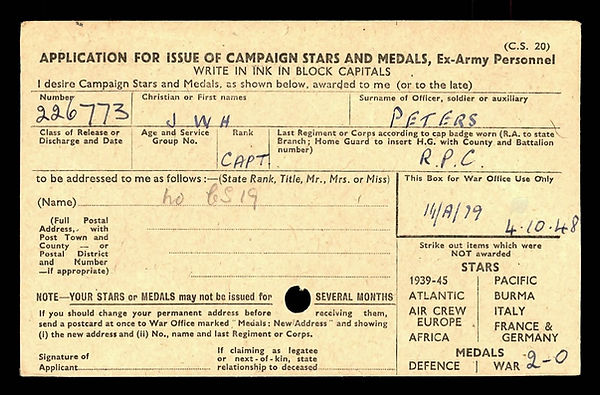 (C.S. 20)
APPLICATION FOR ISSUE OF CAMPAIGN STARS AND MEDALS, Ex-Army Personnel
WRITE IN INK IN BLOCK CAPITALS
I desire Campaign Stars and Medals, as shown below, awarded to me (or to the late)
Number Christian or First names Surname of Officer, soldier or auxiliary
226773 J W H PETERS
Class of Release or Discharge and Date
Age and Service Group No.
Rank
CAPT.
Last Regiment or Corps according to cap badge worn (R.A. to state
Branch; Home Guard to insert H.G. with County and Battalion
number)
R.P.C.
to be addressed to me as follows :—(State Rank, Title, Mr., Mrs. or Miss)
(Name) no CS 19
(Full Postal
Address, with
Post Town and
County — or
Postal District
and Number
—if appropriate)
This Box for War Office Use Only
4.10.48
Strike out items which were
NOT awarded
STARS
1939-45 PACIFIC
ATLANTIC BURMA
AIR CREW EUROPE ITALY
AFRICA FRANCE & GERMANY
MEDALS
DEFENCE WAR 2-0
NOTE—YOUR STARS or MEDALS may not be issued for SEVERAL MONTHS
If you should change your permanent address before receiving them,
send a postcard at once to War Office marked "Medals: New Address" and showing
(i) the new address and (ii) No., name and last Regiment or Corps.
Signature of
Applicant
If claiming as legatee
or next-of-kin, state
relationship to deceased